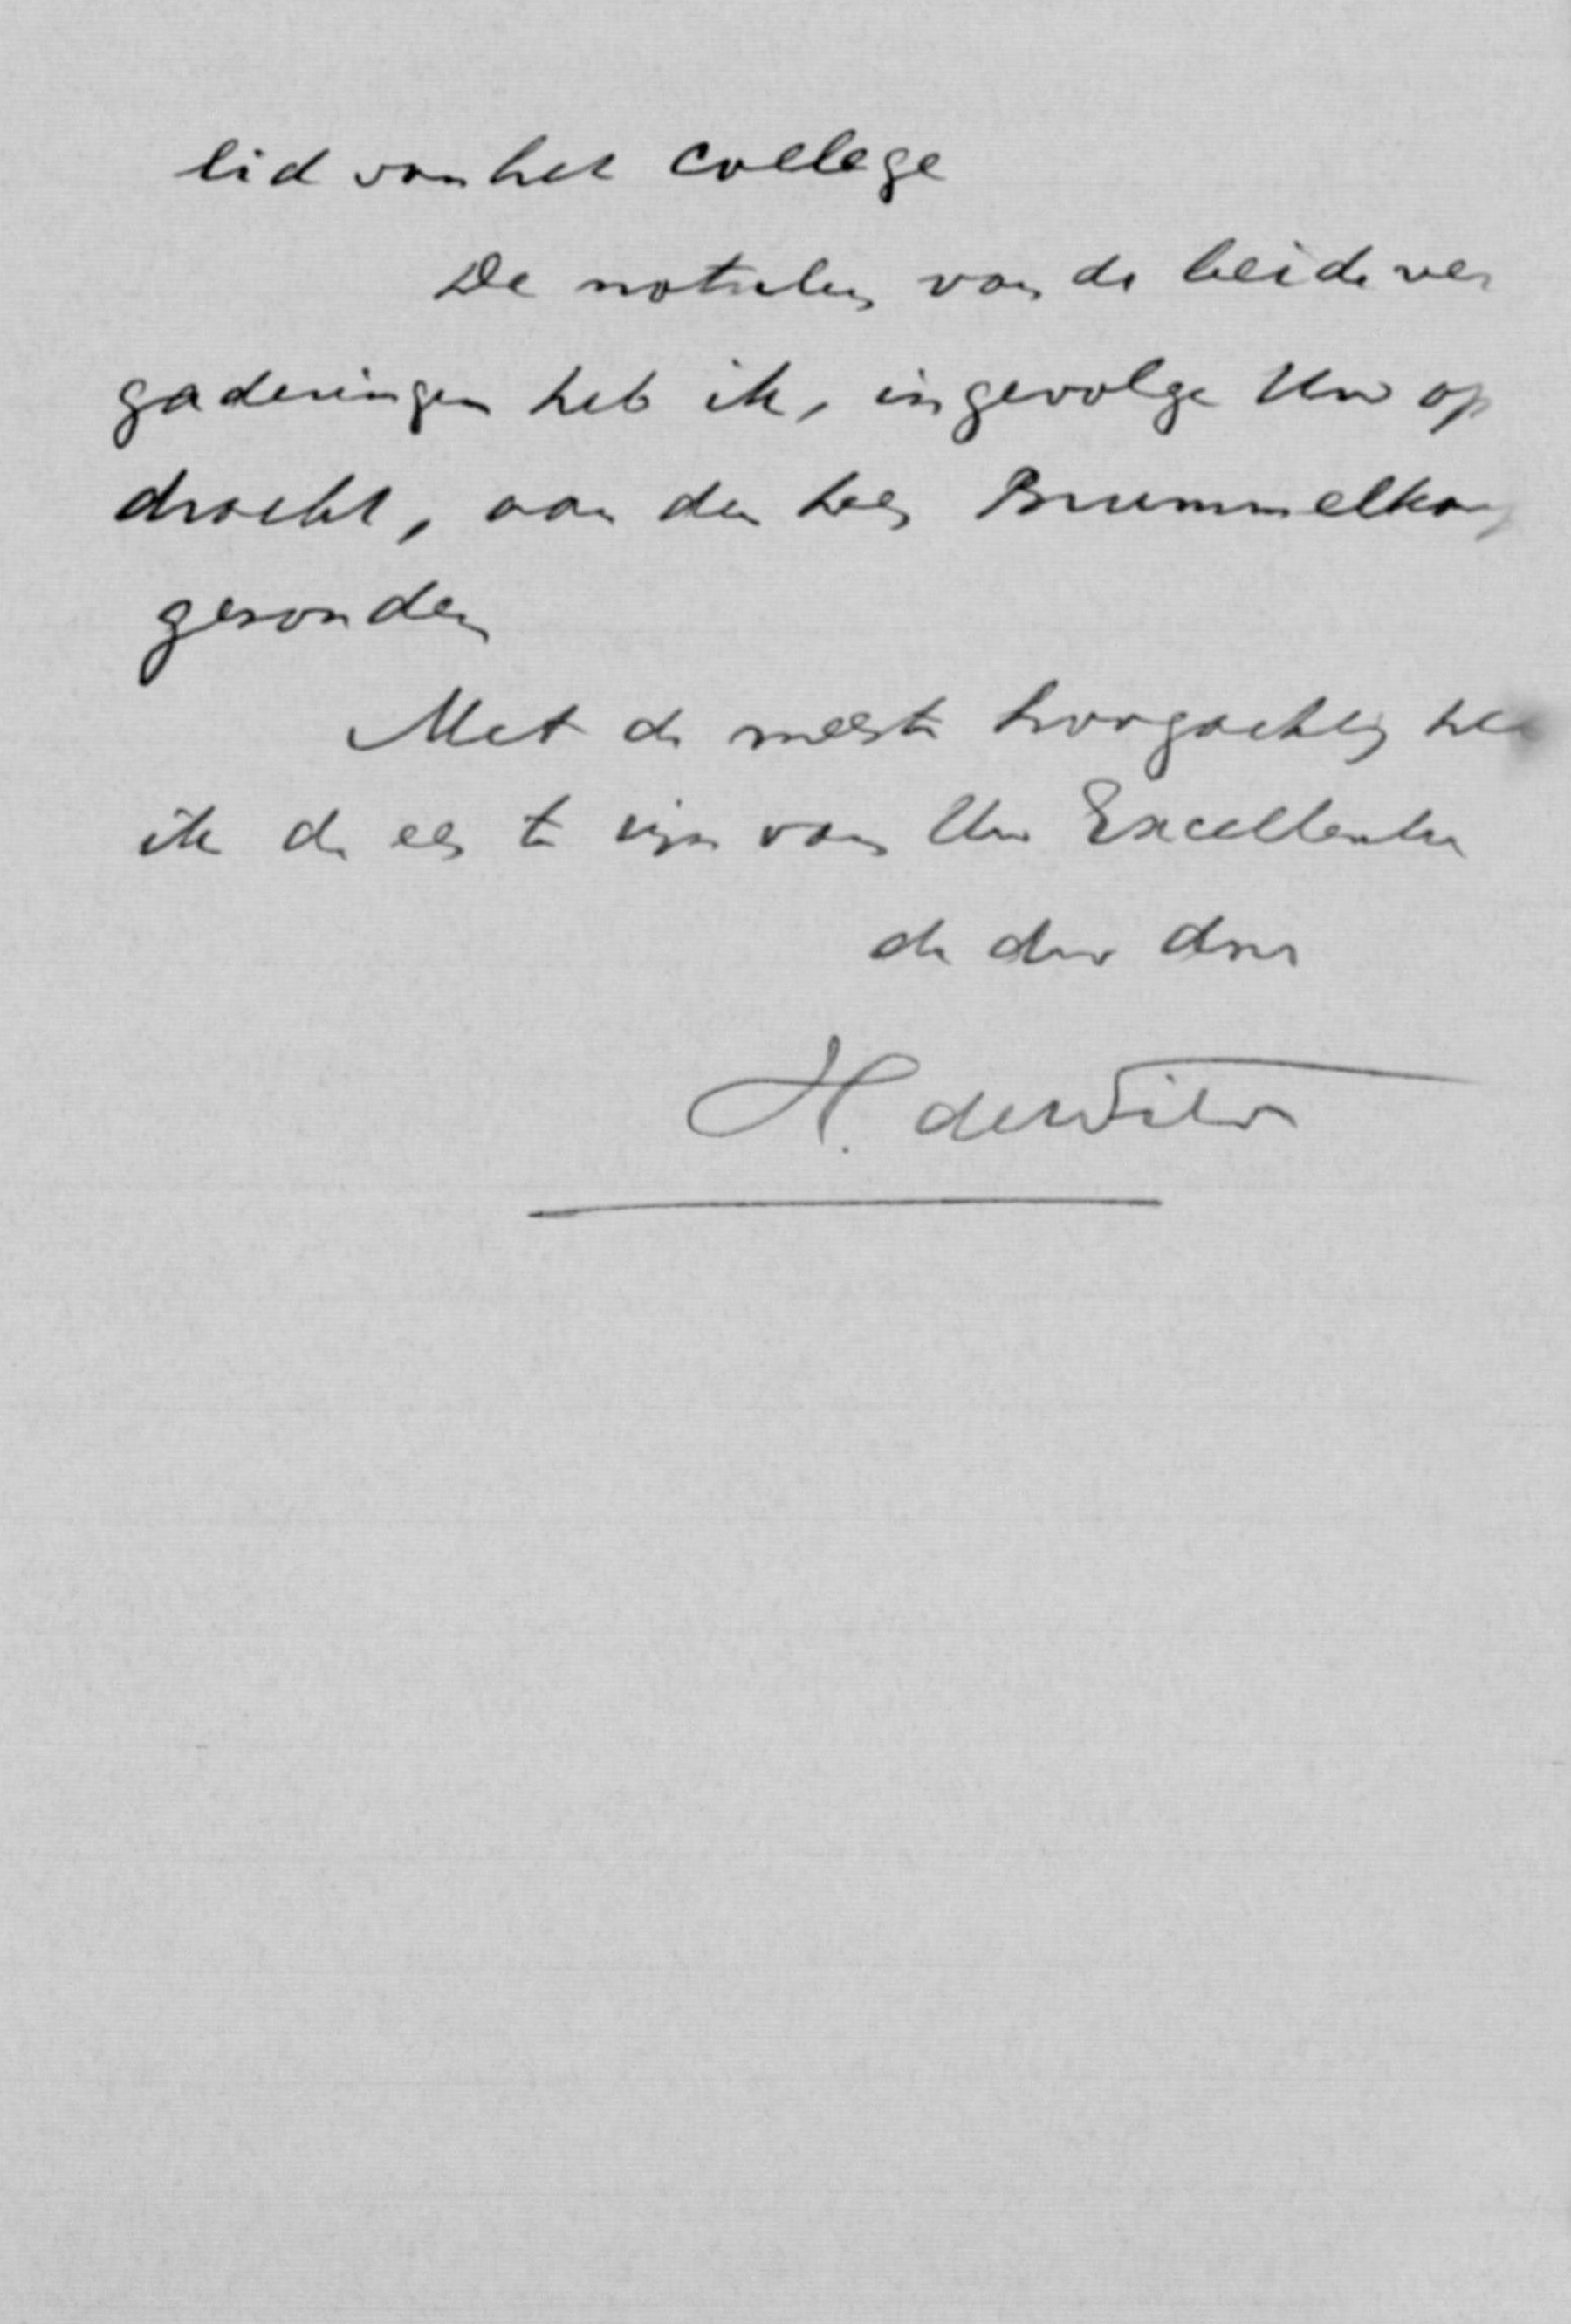 lid van het College
De notulen van de beide ver
gaderingen heb ik, ingevolge Uw op
dracht, aan den heer Brummelkamp
gezonden
Met de meeste hoogachting heb
ik de eer te zijn van Uw Excellentie
de dw dnr
H. de Wilde